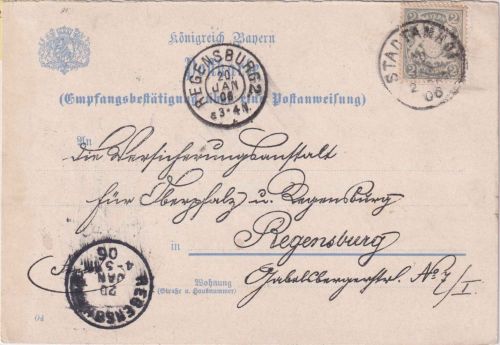 Königreich Bayern
2 2
STADTAMHOF
2
06
REGENSBURG 2
20
JAN
06
3-4N
(Empfangsbestätigung über eine Postanweisung)
An
die Versicherungsanstalt
für Oberpfalz u. Regensburg
in Regensburg
Wohnung
(Straße u. Hausnummer)
Gabelsbergerstr. No 7/I.
REGENSBURG
20
JAN
4-5
06
04